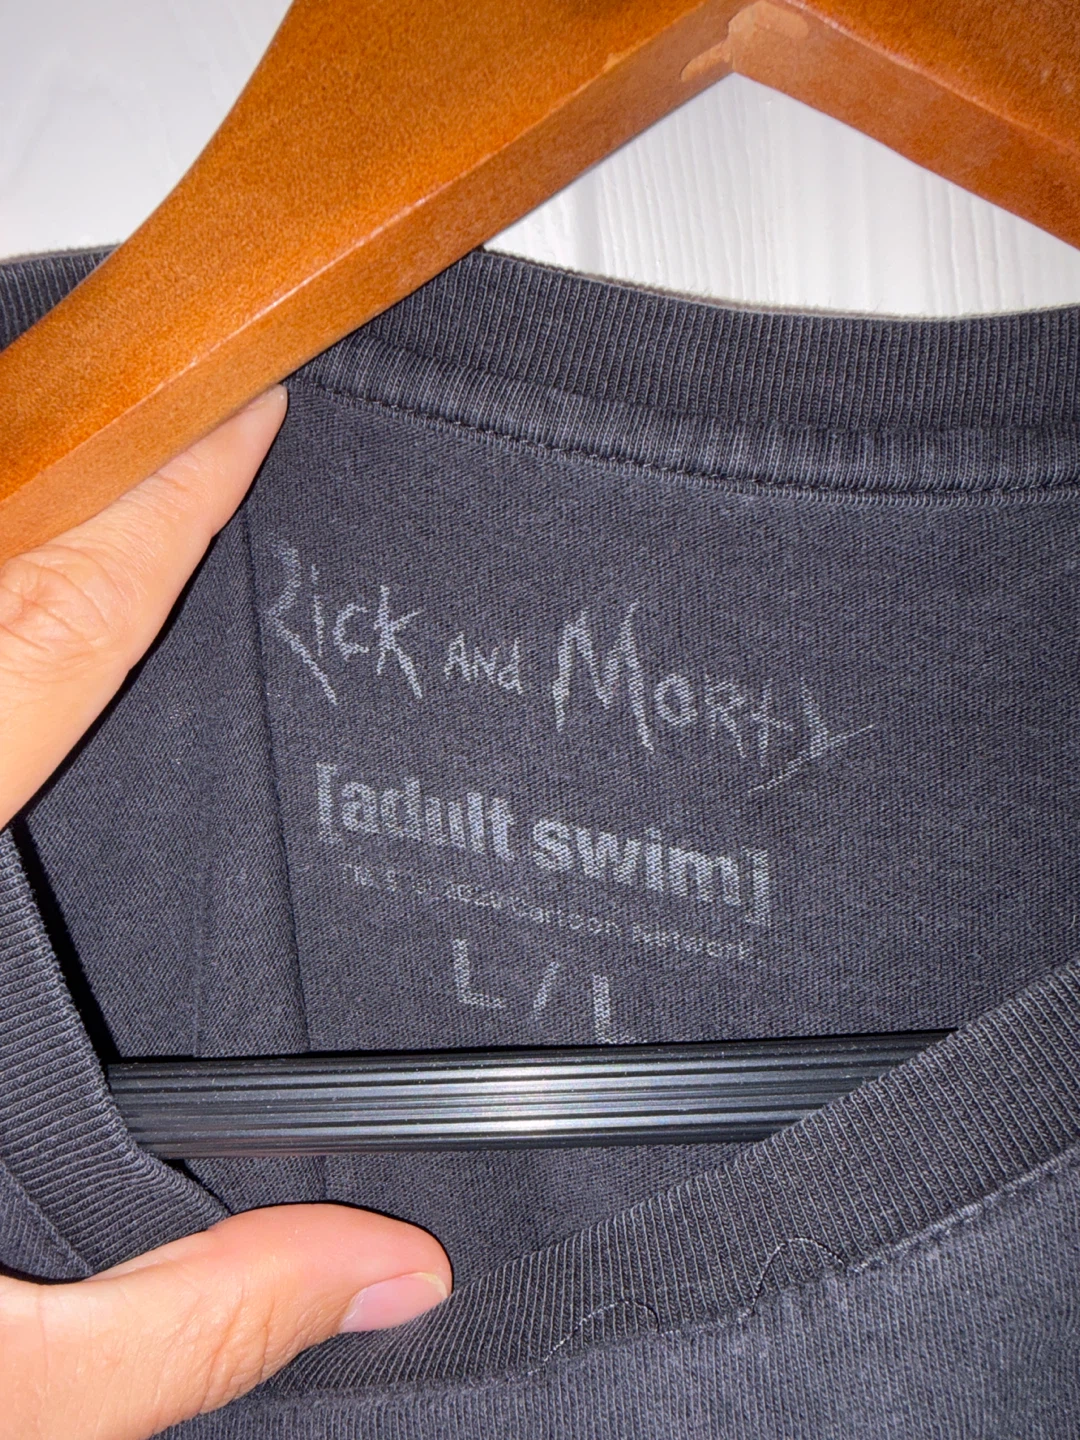 Rick AND Morty
[adult swim]
Cartoon Network.
L / L